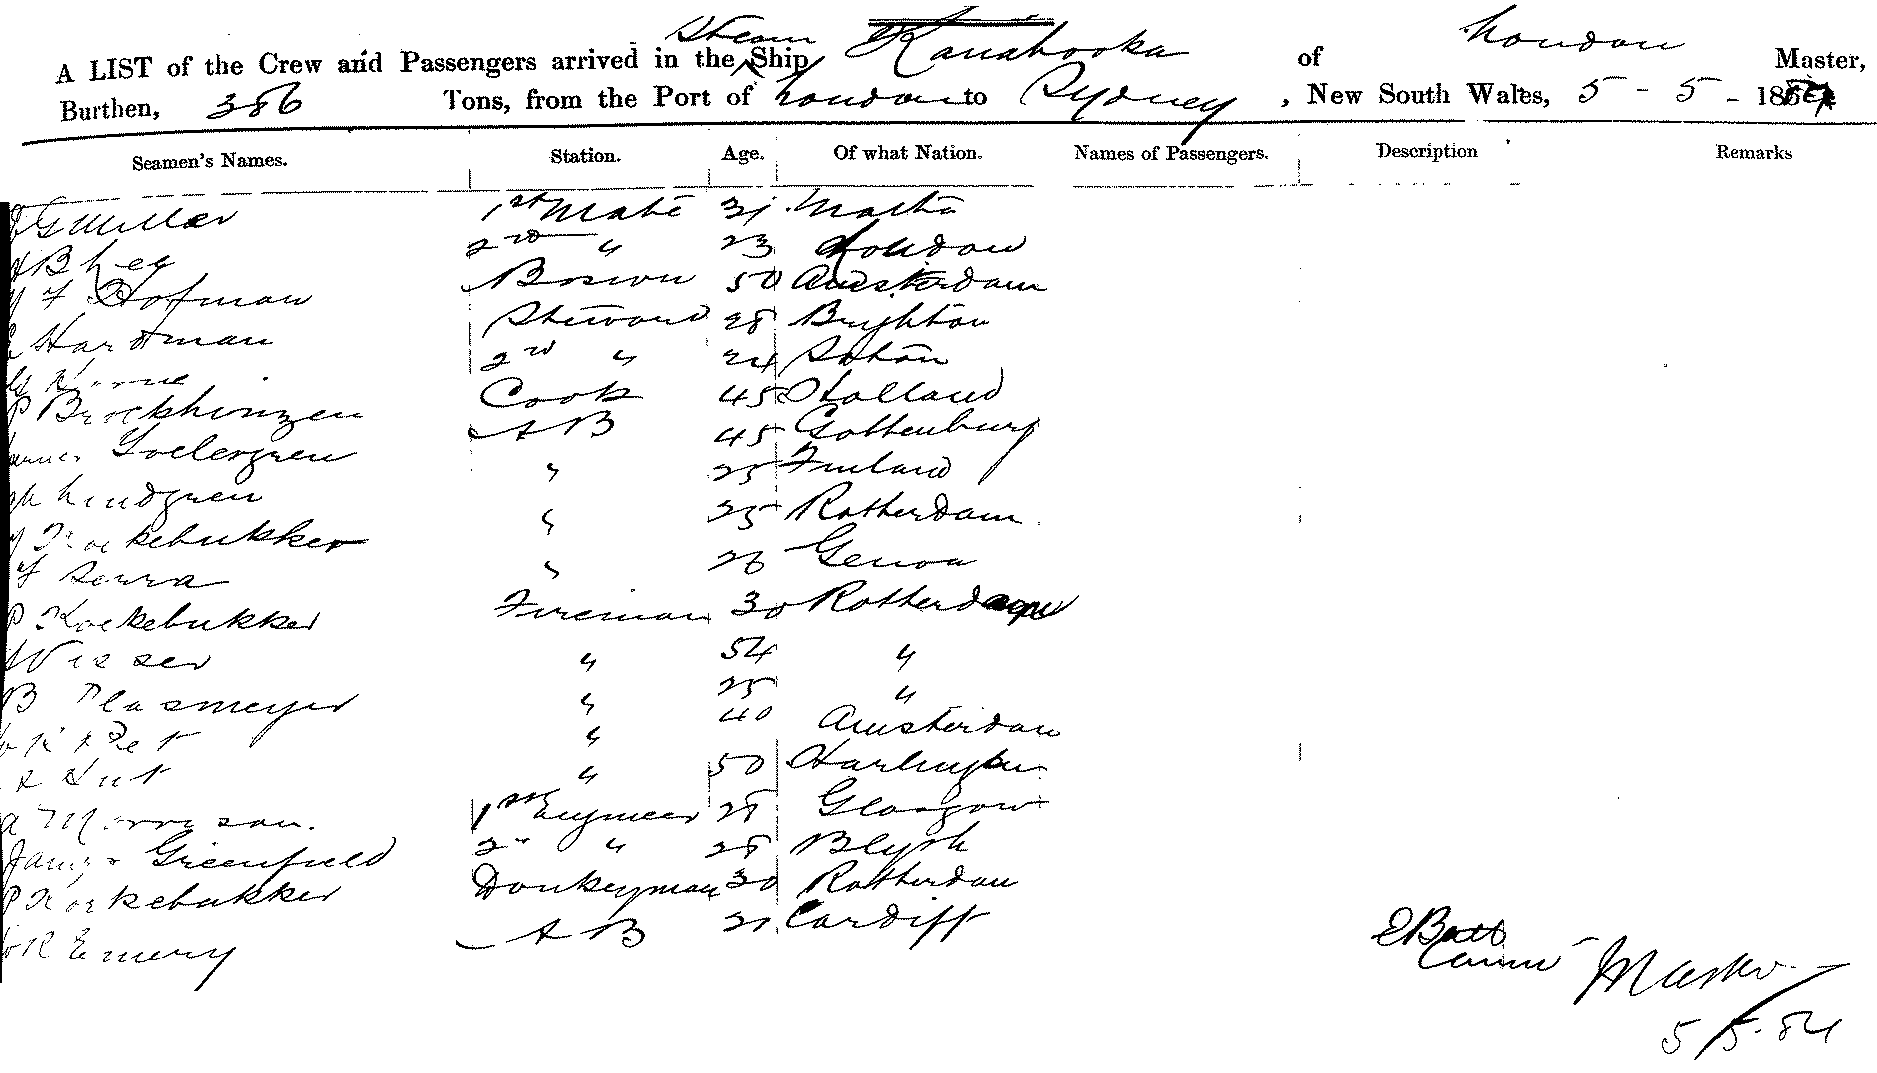 A LIST of the Crew and Passengers arrived in the Steam Ship Kanahooka of London Master,
Burthen, 386 Tons, from the Port of London to Sydney, New South Wales, 5 - 5 - 1884
Seamen's Names. Station. Age. Of what Nation. Names of Passengers. Description Remarks
G Miller 1st Mate 31 Malta
2nd " 23 London
F Hofman Boswn 50 Amsterdam
Hardman Steward 28 Brighton
2nd " 24 Soton
P Brockhinzen Cook 45 Holland
A B 45 Gottenburg
Lindgren " 25 Finland
Koekebukker " 25 Rotterdam
Serra " 26 Genoa
P Koekebukker Fireman 30 Rotterdam
Visser " 54 "
B Plasmeyer " 25 "
" 40 Amsterdam
" 50 Harlingen
A Morrison. 1st Engineer 28 Glasgow
James Greenfield 2nd " 28 Blyth
P Koekebukker Donkeyman 30 Rotterdam
R Emery A B 21 Cardiff
E Batt
Master
5/5.84